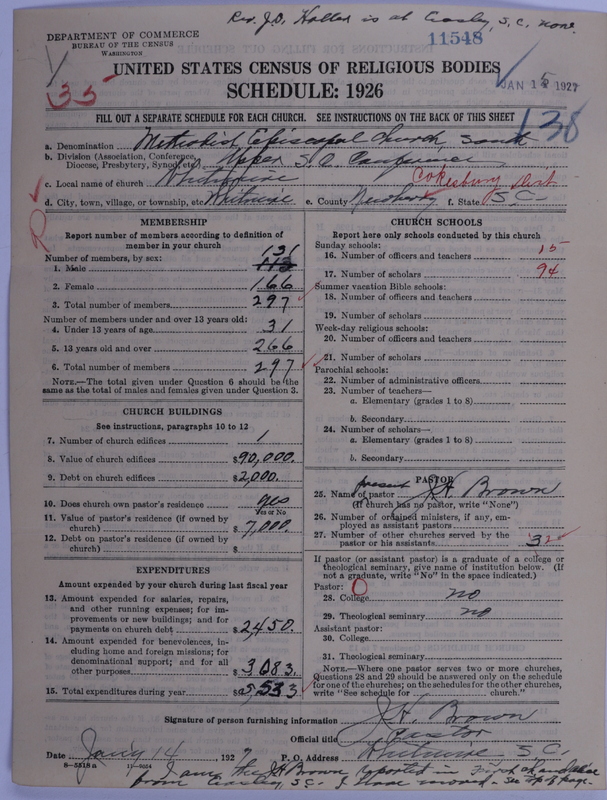 Rev. J.D. Holler is at Easley, S.C. none.
DEPARTMENT OF COMMERCE
BUREAU OF THE CENSUS
WASHINGTON
11548
UNITED STATES CENSUS OF RELIGIOUS BODIES
JAN 15 1927
35
SCHEDULE: 1926
FILL OUT A SEPARATE SCHEDULE FOR EACH CHURCH. SEE INSTRUCTIONS ON THE BACK OF THIS SHEET
138
a. Denomination Methodist Episcopal Church, South
b. Division (Association, Conference, Diocese, Presbytery, Synod, etc.) Upper S.C. Conference
c. Local name of church Whitmire Cokesbury Dist
d. City, town, village, or township, etc. Whitmire e. County Newberry f. State S.C.
R
MEMBERSHIP
Report number of members according to definition of member in your church
Number of members, by sex: 131
1. Male 113
2. Female 166
3. Total number of members 297
Number of members under and over 13 years old:
4. Under 13 years of age 31
5. 13 years old and over 266
6. Total number of members 297
NOTE.—The total given under Question 6 should be the same as the total of males and females given under Question 3.
CHURCH BUILDINGS
See instructions, paragraphs 10 to 12
7. Number of church edifices 1
8. Value of church edifices $90,000.
9. Debt on church edifices $2,000.
10. Does church own pastor's residence yes
Yes or No
11. Value of pastor's residence (if owned by church) $7,000.
12. Debt on pastor's residence (if owned by church) $
EXPENDITURES
Amount expended by your church during last fiscal year
13. Amount expended for salaries, repairs, and other running expenses; for improvements or new buildings; and for payments on church debt $2,450.
14. Amount expended for benevolences, including home and foreign missions; for denominational support; and for all other purposes $3,083.
15. Total expenditures during year $5,533
CHURCH SCHOOLS
Report here only schools conducted by this church
Sunday schools:
16. Number of officers and teachers 15
17. Number of scholars 94
Summer vacation Bible schools:
18. Number of officers and teachers
19. Number of scholars
Week-day religious schools:
20. Number of officers and teachers
21. Number of scholars
Parochial schools:
22. Number of administrative officers
23. Number of teachers—
a. Elementary (grades 1 to 8)
b. Secondary
24. Number of scholars—
a. Elementary (grades 1 to 8)
b. Secondary
PASTOR
25. Name of present pastor J.H. Brown
(If church has no pastor, write "None")
26. Number of ordained ministers, if any, employed as assistant pastors
27. Number of other churches served by the pastor or his assistants 3
If pastor (or assistant pastor) is a graduate of a college or theological seminary, give name of institution below. (If not a graduate, write "No" in the space indicated.)
Pastor: O
28. College no
29. Theological seminary no
Assistant pastor:
30. College
31. Theological seminary
NOTE.—Where one pastor serves two or more churches, Questions 28 and 29 should be answered only on the schedule for one of the churches; on the schedules for the other churches, write "See schedule for church."
Signature of person furnishing information J.H. Brown
Official title Pastor
Date Jan'y 14 1927 P. O. Address Whitmire S.C.
8—5518 a 11—9024
I am the J.H. Brown reported in
from Easley, S.C. I have moved. See top of page.